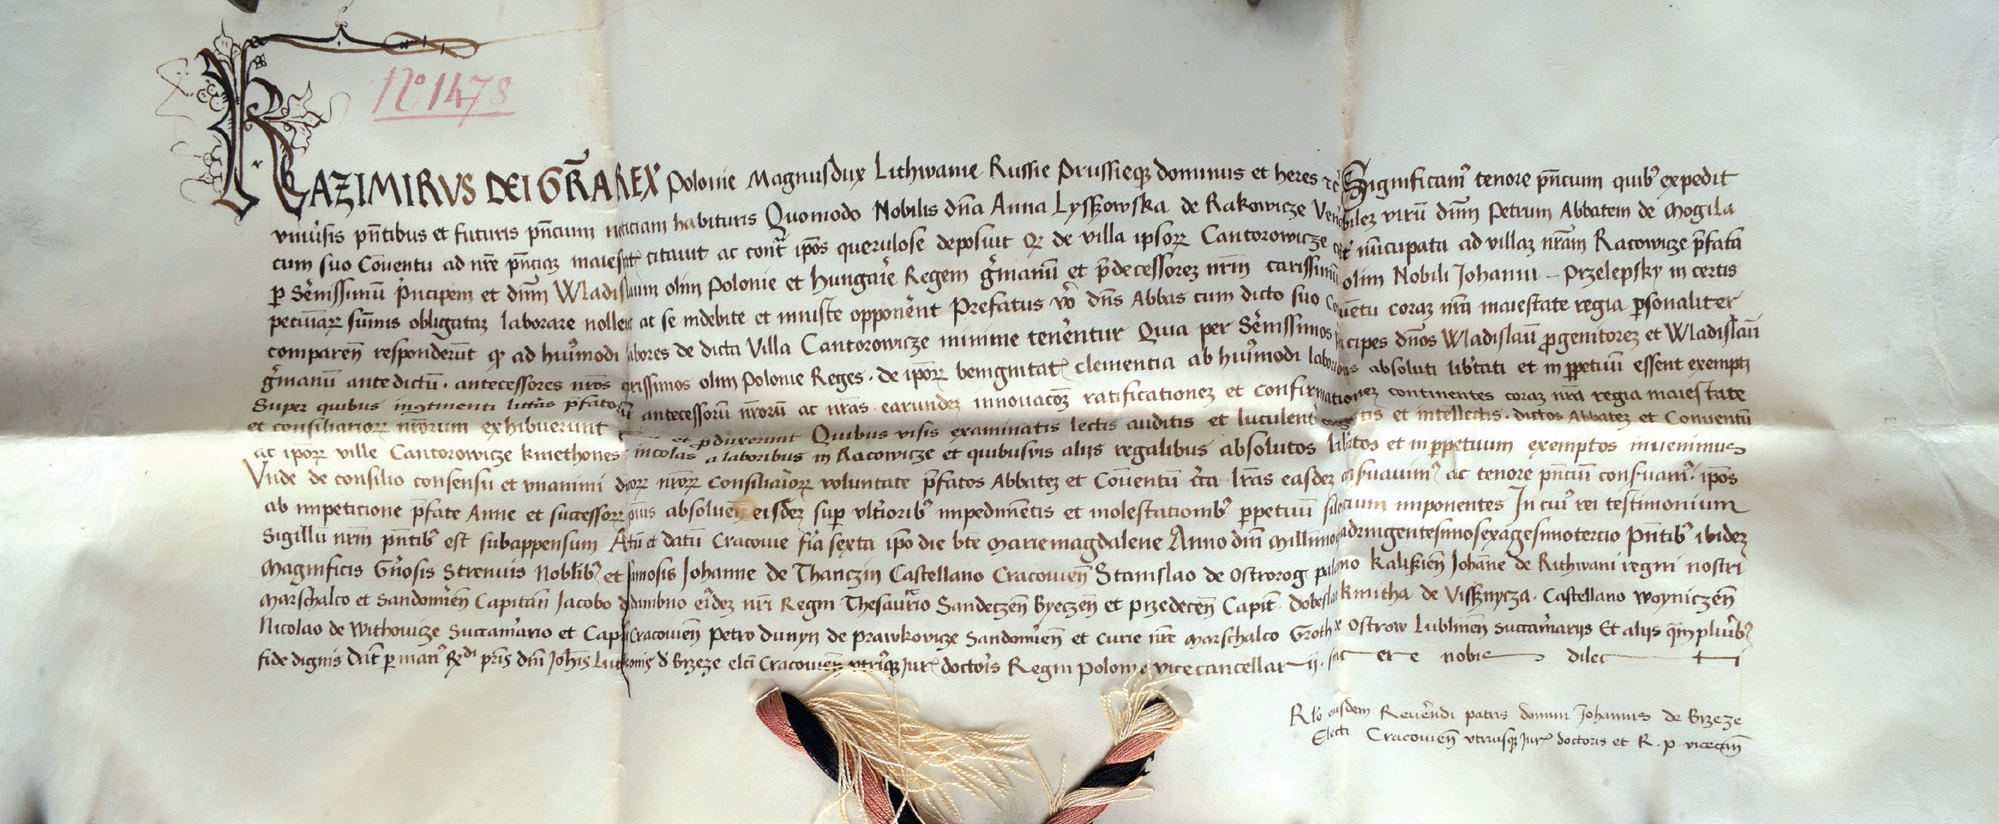 No 1478
KAZIMIRVS DEI GRA REX Polonie Magnusdux Lithwanie Russie Prussieqz dominus et heres Significam9 tenore pñcum quib9 expedit
vniũsis pñtibus et futuris pñcium noticiam habituris Quomodo Nobilis dña Anna Lysszowska de Rakowicze Venerabilez virũ dñm Petrum Abbatem de Mogila
cum suo Cõventu ad nr̃e pñciaz citauit ac contr̃ ip̃os querulose deposuit de villa ipsorz Cantorowicze nũcupata ad villaz nr̃am Racowicze p̃fata
p Sẽnissimũ p̃ncipem et dñm Wladislaum olim Polonie et Hungarie Regem g̃manũ et p̃decessorez nr̃m carissimũ olim Nobili Johanni Przelepsky in certis
pecuniarz sũmis obligataz laborare nollent ac se indebite et iniuste opponẽnt Prefatus vo dñs Abbas cum dicto suo Conuẽtu coraz nr̃a maiestate regia p̃sonaliter
comparen̄ responderũt qz ad huiusmodi labores de dicta Villa Cantorowicze minime tenẽntur Quia per Sẽnissimos p̃ncipes dños Wladislaũ p̃genitorez et Wladislaũ
g̃manũ antedictũ antecessores nr̃os carissimos olim Polonie Reges de ip̃orz benignitat clementia ab huiusmodi laboribus absoluti lib̃tati et in p̃petiuũ essent exempti
Super quibus ingtinenti litt̃as p̃fatorũ antecessorũ nr̃orũ ac nr̃as earundez innouacõz ratificationez et confirmationez continentes coraz nr̃a regia maiestate
et consiliariorz nr̃orum exhibuerunt et p̃duxerunt Quibus visis examinatis lectis auditis et luculent et intellectis dictos Abbatez et Conuentũ
ac ip̃orz ville Cantorowicze kmethones incolas a laboribus in Racowicze et quibusvis alijs regalibus absolutos lib̃tos et in p̃petuum exemptos inuenimus
Vnde de consilio consensu et vnanimi nr̃orz Consiliariorz voluntate p̃fatos Abbatez et Cõuentũ lr̃as easdez ac tenore pñciũ ip̃os
ab impeticione p̃fate Anne et successorz absoluen̄ eisdez sup vlt̃iorib9 impedimẽtis et molestationib9 p̃petuũ silencium imponentes In cui9 rei testimonium
Sigillũ nr̃m pñtib9 est subappensum Actũ et datũ Cracouie fia sexta ip̃o die bte Mariemagdalene Anno dñi Millimo quadringentesimosexagesimotercio Pñtib9 ibidez
Magnificis Gñosis Strenuis Noblib9 et famosis Johanne de Thanczin Castellano Cracouien̄ Stanislao de Ostrorog palatino Kalissien̄ Johãne de Rithwani regni nostri
Marschalco et Sandomĩen Capitan̄ Jacobo d̃ dambno eĩdez nr̃i Regni Thesaur̃io Sandeczen̄ Byeczen̄ et przedecen̄ Capit̃ dobeslao kmitha de Vissnycza Castellano woyniczen̄
Nicolao de Withowicze Succamr̃ario et Capit̃ Cracouien̄ Petro Dunyn de prawkowicze Sandomien̄ et Curie nr̃e Marschalco Groth de Ostrow Lublinen̄ succamr̃arijs Et alijs q̃m plurib9
fide dignis Dat̃ p man9 Rdi p̃ris dñi Joh̃is Lutkonis d̃ Brzeze elcti Cracouien̄ vtriusqz Jur̃ doctoris Regni Polonie vicecancellarij sincere nobis dilecti
Rlo easdem Reuẽndi patris domini Johannis de Brzeze
Electi Cracouien̄ vtriusqz Jur̃ doctoris et R. p. vicecan̄